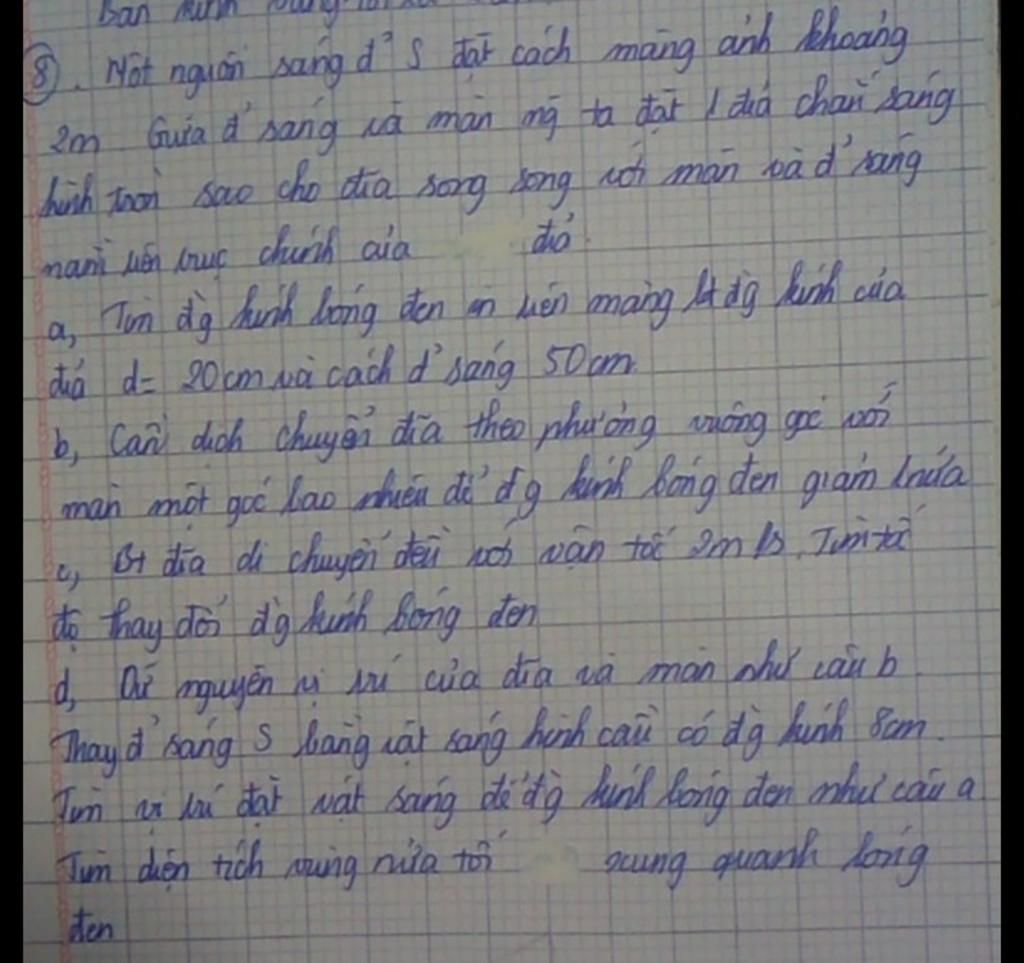 Bạn
8). Một nguồn sáng đ' S đặt cách màng ảnh khoảng
2m Giữa đ' sáng và màn ng ta đặt 1 đĩa chắn sáng
hình tròn sao cho đĩa song song với màn và đ' sáng
nằm trên trục chính của đĩa.
a, Tìm đg kính bóng đen in trên màng bt đg kính của
đĩa d= 20cm và cách đ' sáng 50cm.
b, Cần dịch chuyển đĩa theo phương vuông góc với
màn một góc bao nhiêu để đg kính bóng đen giảm 1 nửa
c, Bt đĩa di chuyển đều với vận tốc 2m/s. Tìm tốc
độ thay đổi đg kính bóng đen
d, Giữ nguyên vị trí của đĩa và màn như câu b.
Thay đ' sáng S bằng vật sáng hình cầu có đg kính 8cm.
Tìm vị trí đặt vật sáng để đg kính bóng đen như câu a
Tìm diện tích vùng nửa tối xung quanh bóng
đen